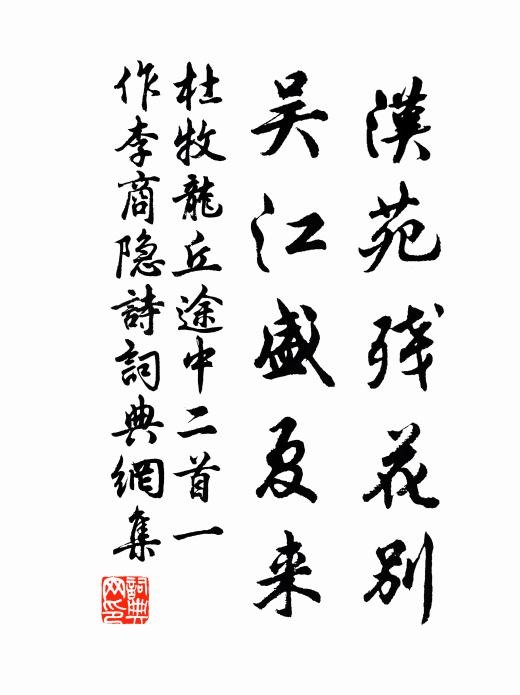 漢苑残花別
吴江盛夏来
杜牧龍丘途中二首一
作李商隐詩詞典網集
詞典網印